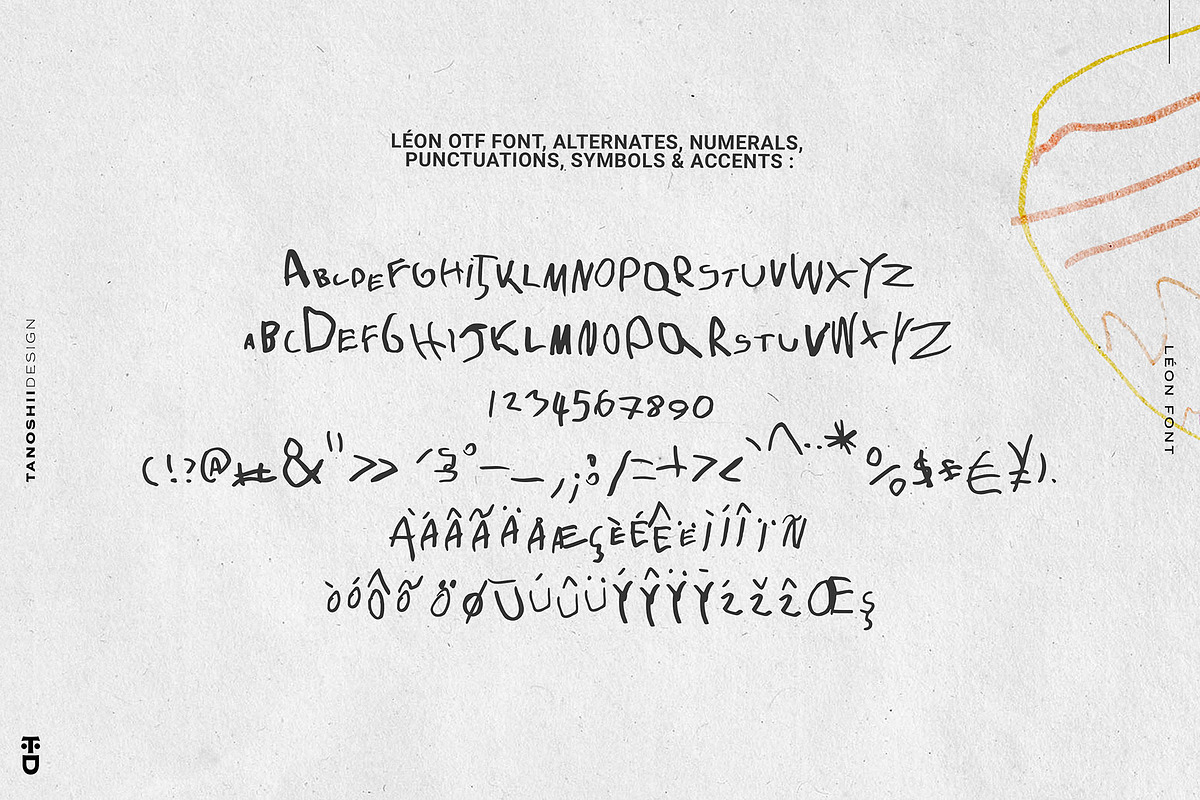 LÉON OTF FONT, ALTERNATES, NUMERALS,
PUNCTUATIONS, SYMBOLS & ACCENTS :
ABCDEFGHIJKLMNOPQRSTUVWXYZ
ABCDEFGHIJKLMNOPQRSTUVWXYZ
1234567890
(!?@#&">>
-_,;:/=+><`^..*%$£€¥).
ÀÁÂÃÄÅÆÇÈÉÊËÌÍÎÏÑ
ÒÓÔÕÖØŪÚÛÜÝŶŸỲŹŽẐŒŞ
TANOSHIIDESIGN
LÉON FONT
TD